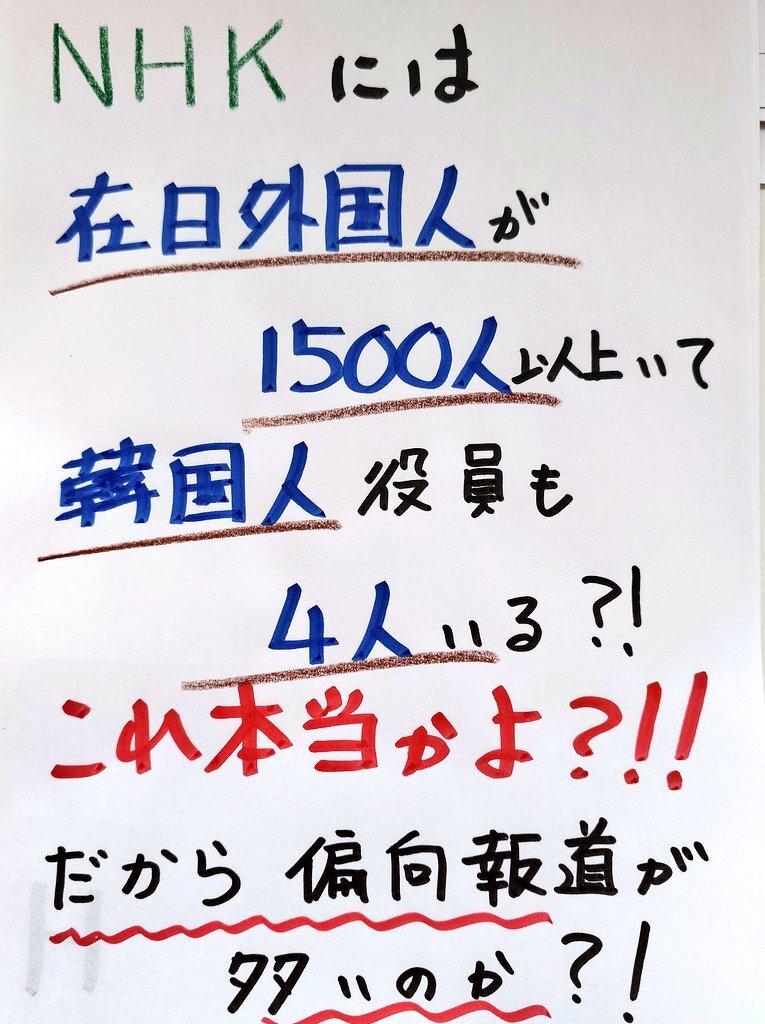 NHKには
在日外国人が
1500人以上いて
韓国人役員も
4人いる?!
これ本当かよ?!!
だから偏向報道が
多いのか?!